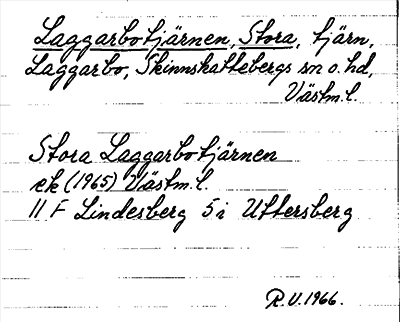 Laggarbotjärnen, Stora, tjärn,
Laggarbo, Skinnskattebergs sn o. hd,
Västm. l.
Stora Laggarbotjärnen
ek (1965) Västm. l.
11 F Lindesberg 5 i Uttersberg
R.V. 1966.